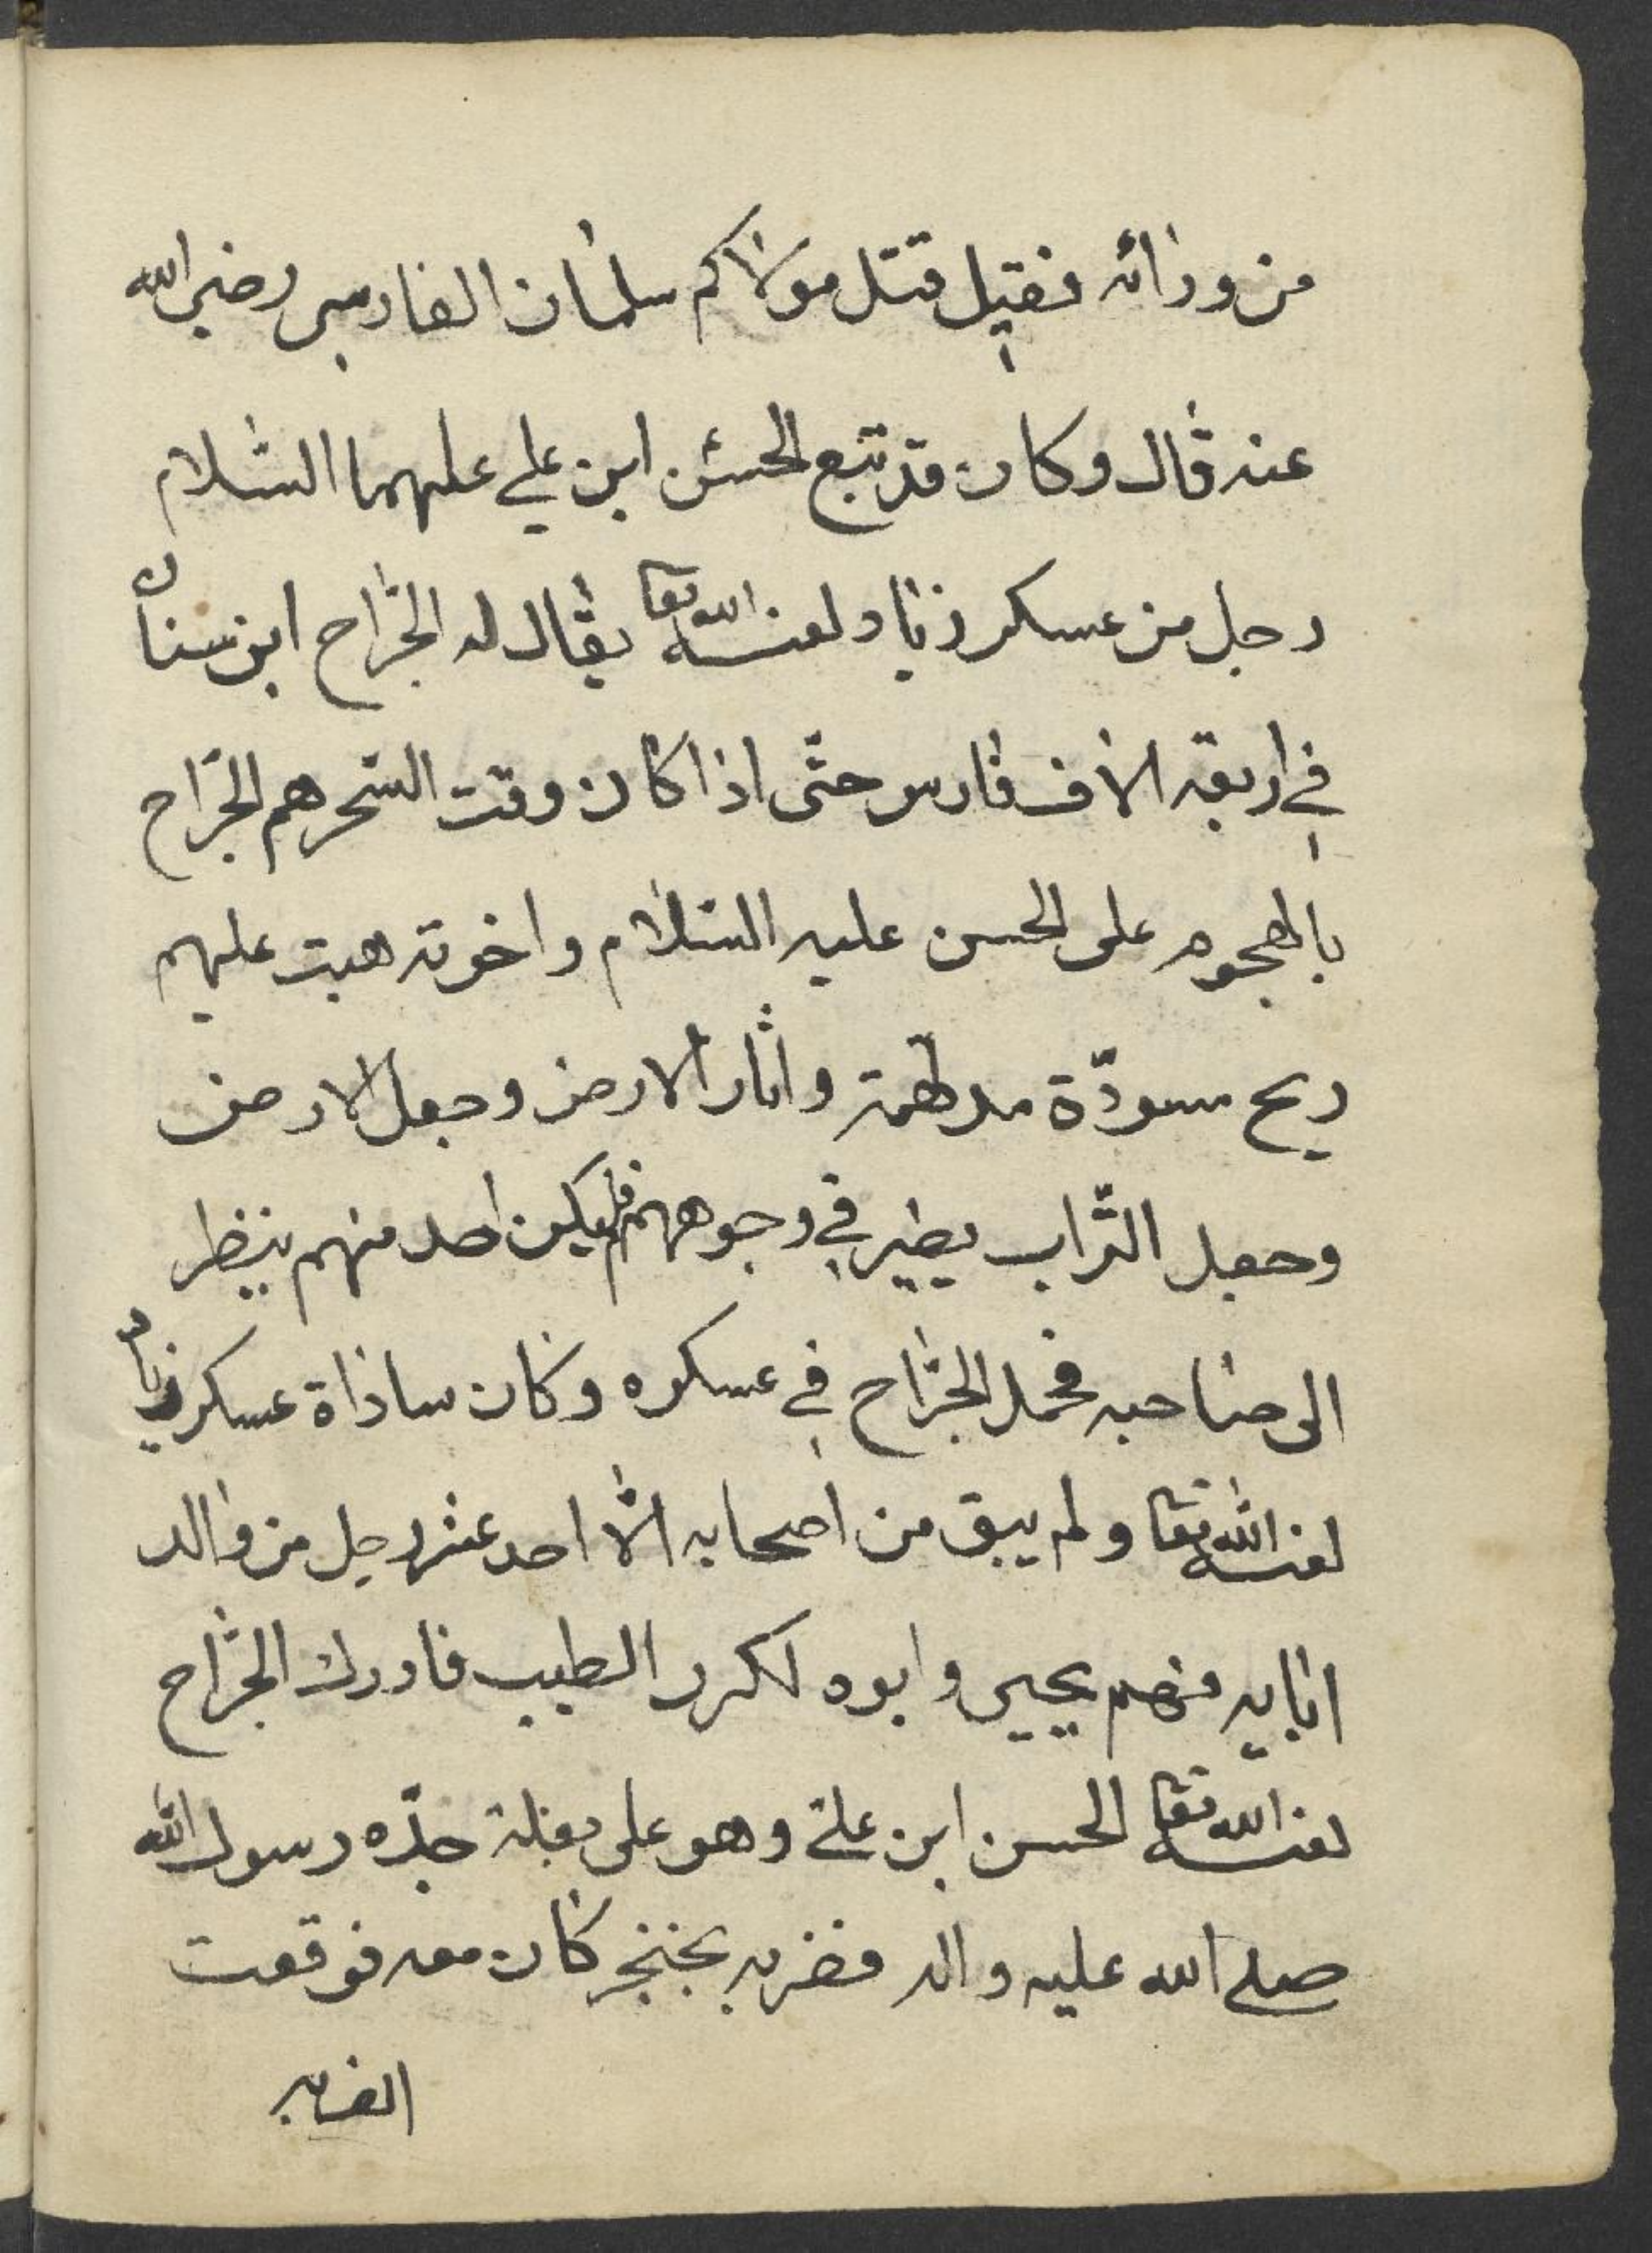 من ورائه فقيل قتل مولاكم سلمان الفارسي رضي الله
عنه قال وكان قد تبع الحسن ابن علي عليهما السلام
رجل من عسكر زياد لعنه الله تعا يقال له الجراح ابن سنان
في اربعة الاف فارس حتى اذا كان وقت السحر هم الجراح
بالهجوم على الحسن عليه السلام واخوته هبت عليهم
ريح مسودّة مدلهمة واثار الارض وجعل الارض
وجعل التراب يطير في وجوههم فلم يكن احد منهم ينظر
الى صاحبه فحمل الجراح في عسكره وكان ساذاة عسكر زياد
لعنه الله تعا ولم يبق من اصحابه الّا احد عشر رجل من والد
انابيه منهم يحيى وابوه لكرر الطبيب فادرك الجراح
لعنه الله تعا الحسن ابن علي وهو على بغلة جدّه رسول الله
صلى الله عليه واله فضربه بخنجر كان معه فوقعت
الضربه